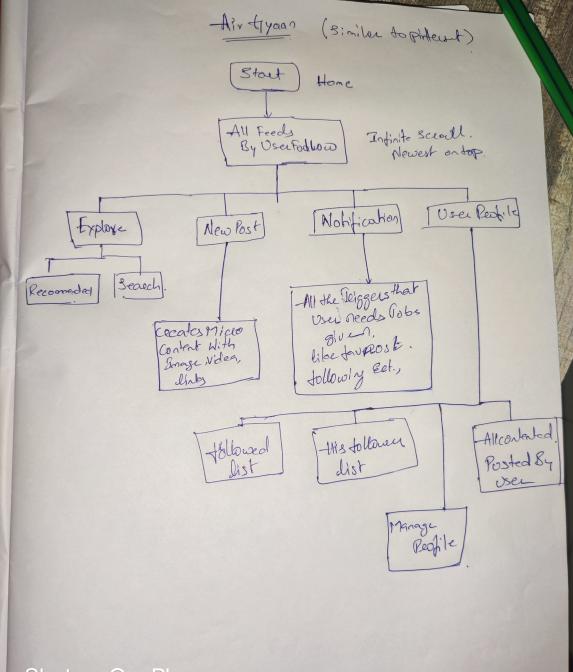 Air Gyaan (Similar to pinterest)
Start
Home
All Feeds
By User Follow
Infinite Scroll.
Newest on top.
Explore
New Post
Notification
User Profile
Recomended
Search
Creates Micro
Content With
Image, Video,
links
All the Triggers that
User needs to be
given,
like fav post.
following Ect.,
followed
list
His follower
list
All contented
Posted By
User
Manage
Profile